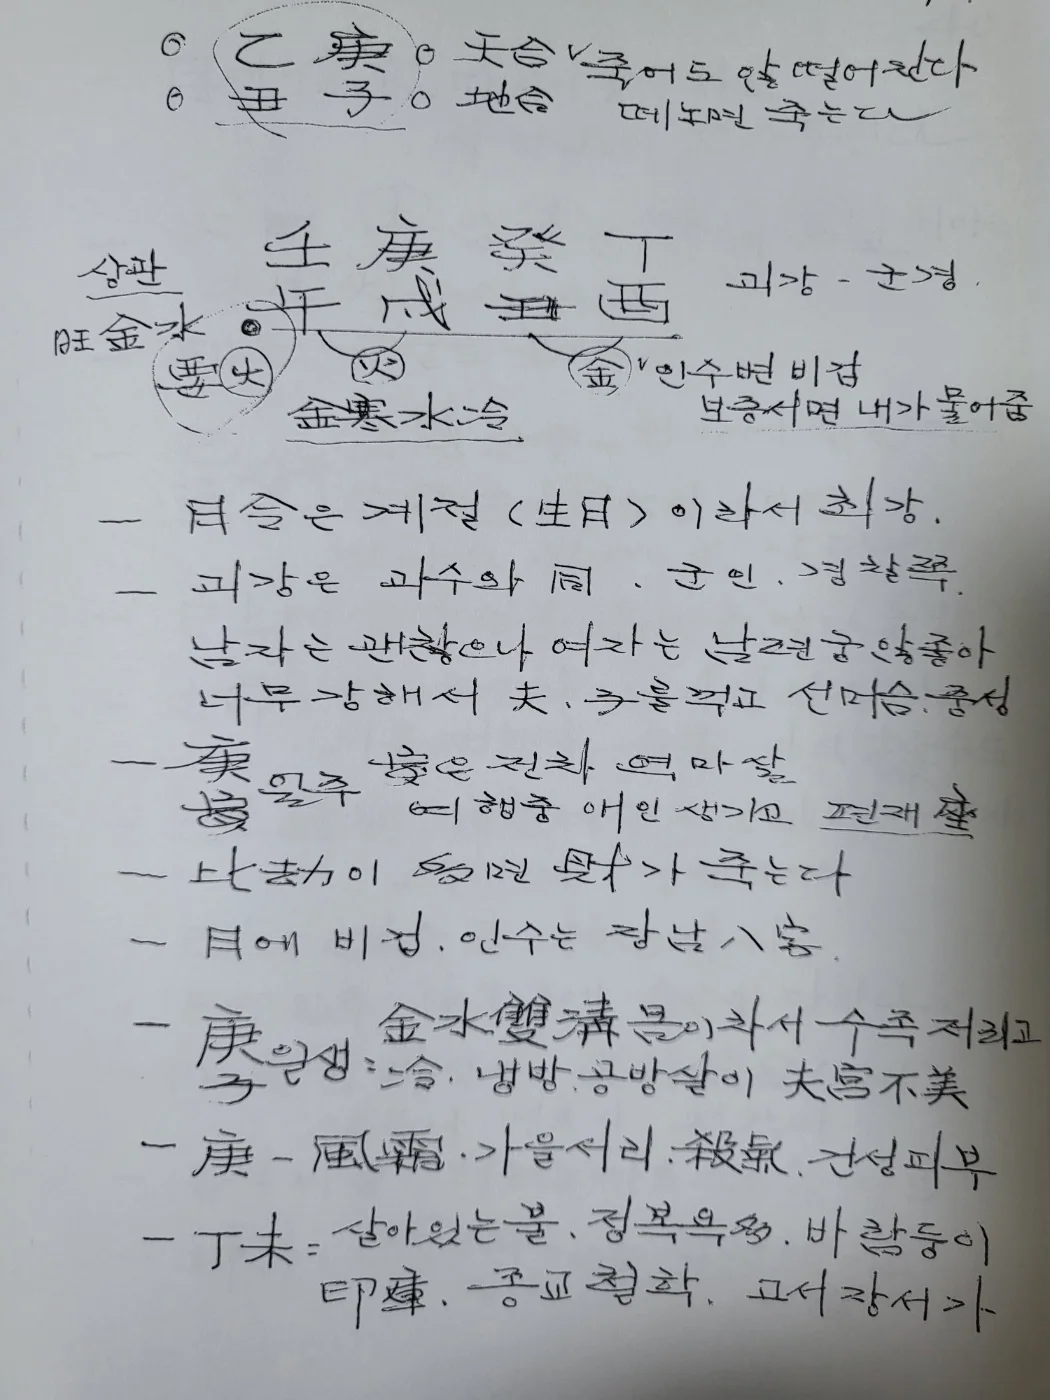 ◦ 乙 庚 ◦ 天合 ᵛ죽어도 않떨어진다
◦ 丑 子 ◦ 地合 떼놔면 죽는다
壬 庚 癸 丁
상관 午 戌 丑 酉 괴강 - 군경.
旺金水 • 要火 火 金 ᵛ인수변 비겁
金寒水冷 보증서면 내가 물어줌
- 月令은 계절(生月)이라서 최강.
- 괴강은 과수와 同. 군인. 경찰쪽.
남자는 괜찮으나 여자는 남편궁 않좋아
너무 강해서 夫. 子를 꺽고 선머슴. 중성
- 庚寅일주 寅은 전차 역마살
여행중 애인 생기고 편재 座
- 比劫이 多면 財가 죽는다
- 月에 비겁. 인수는 장남 八字.
- 庚子일생: 金水雙淸 몸이 차서 수족 저리고
冷. 냉방. 공방살이 夫宮不美
- 庚 - 風霜. 가을서리. 殺氣. 건성피부
- 丁未 = 살아있는 불. 정복욕多. 바람둥이
印庫. 종교철학. 고서장서가